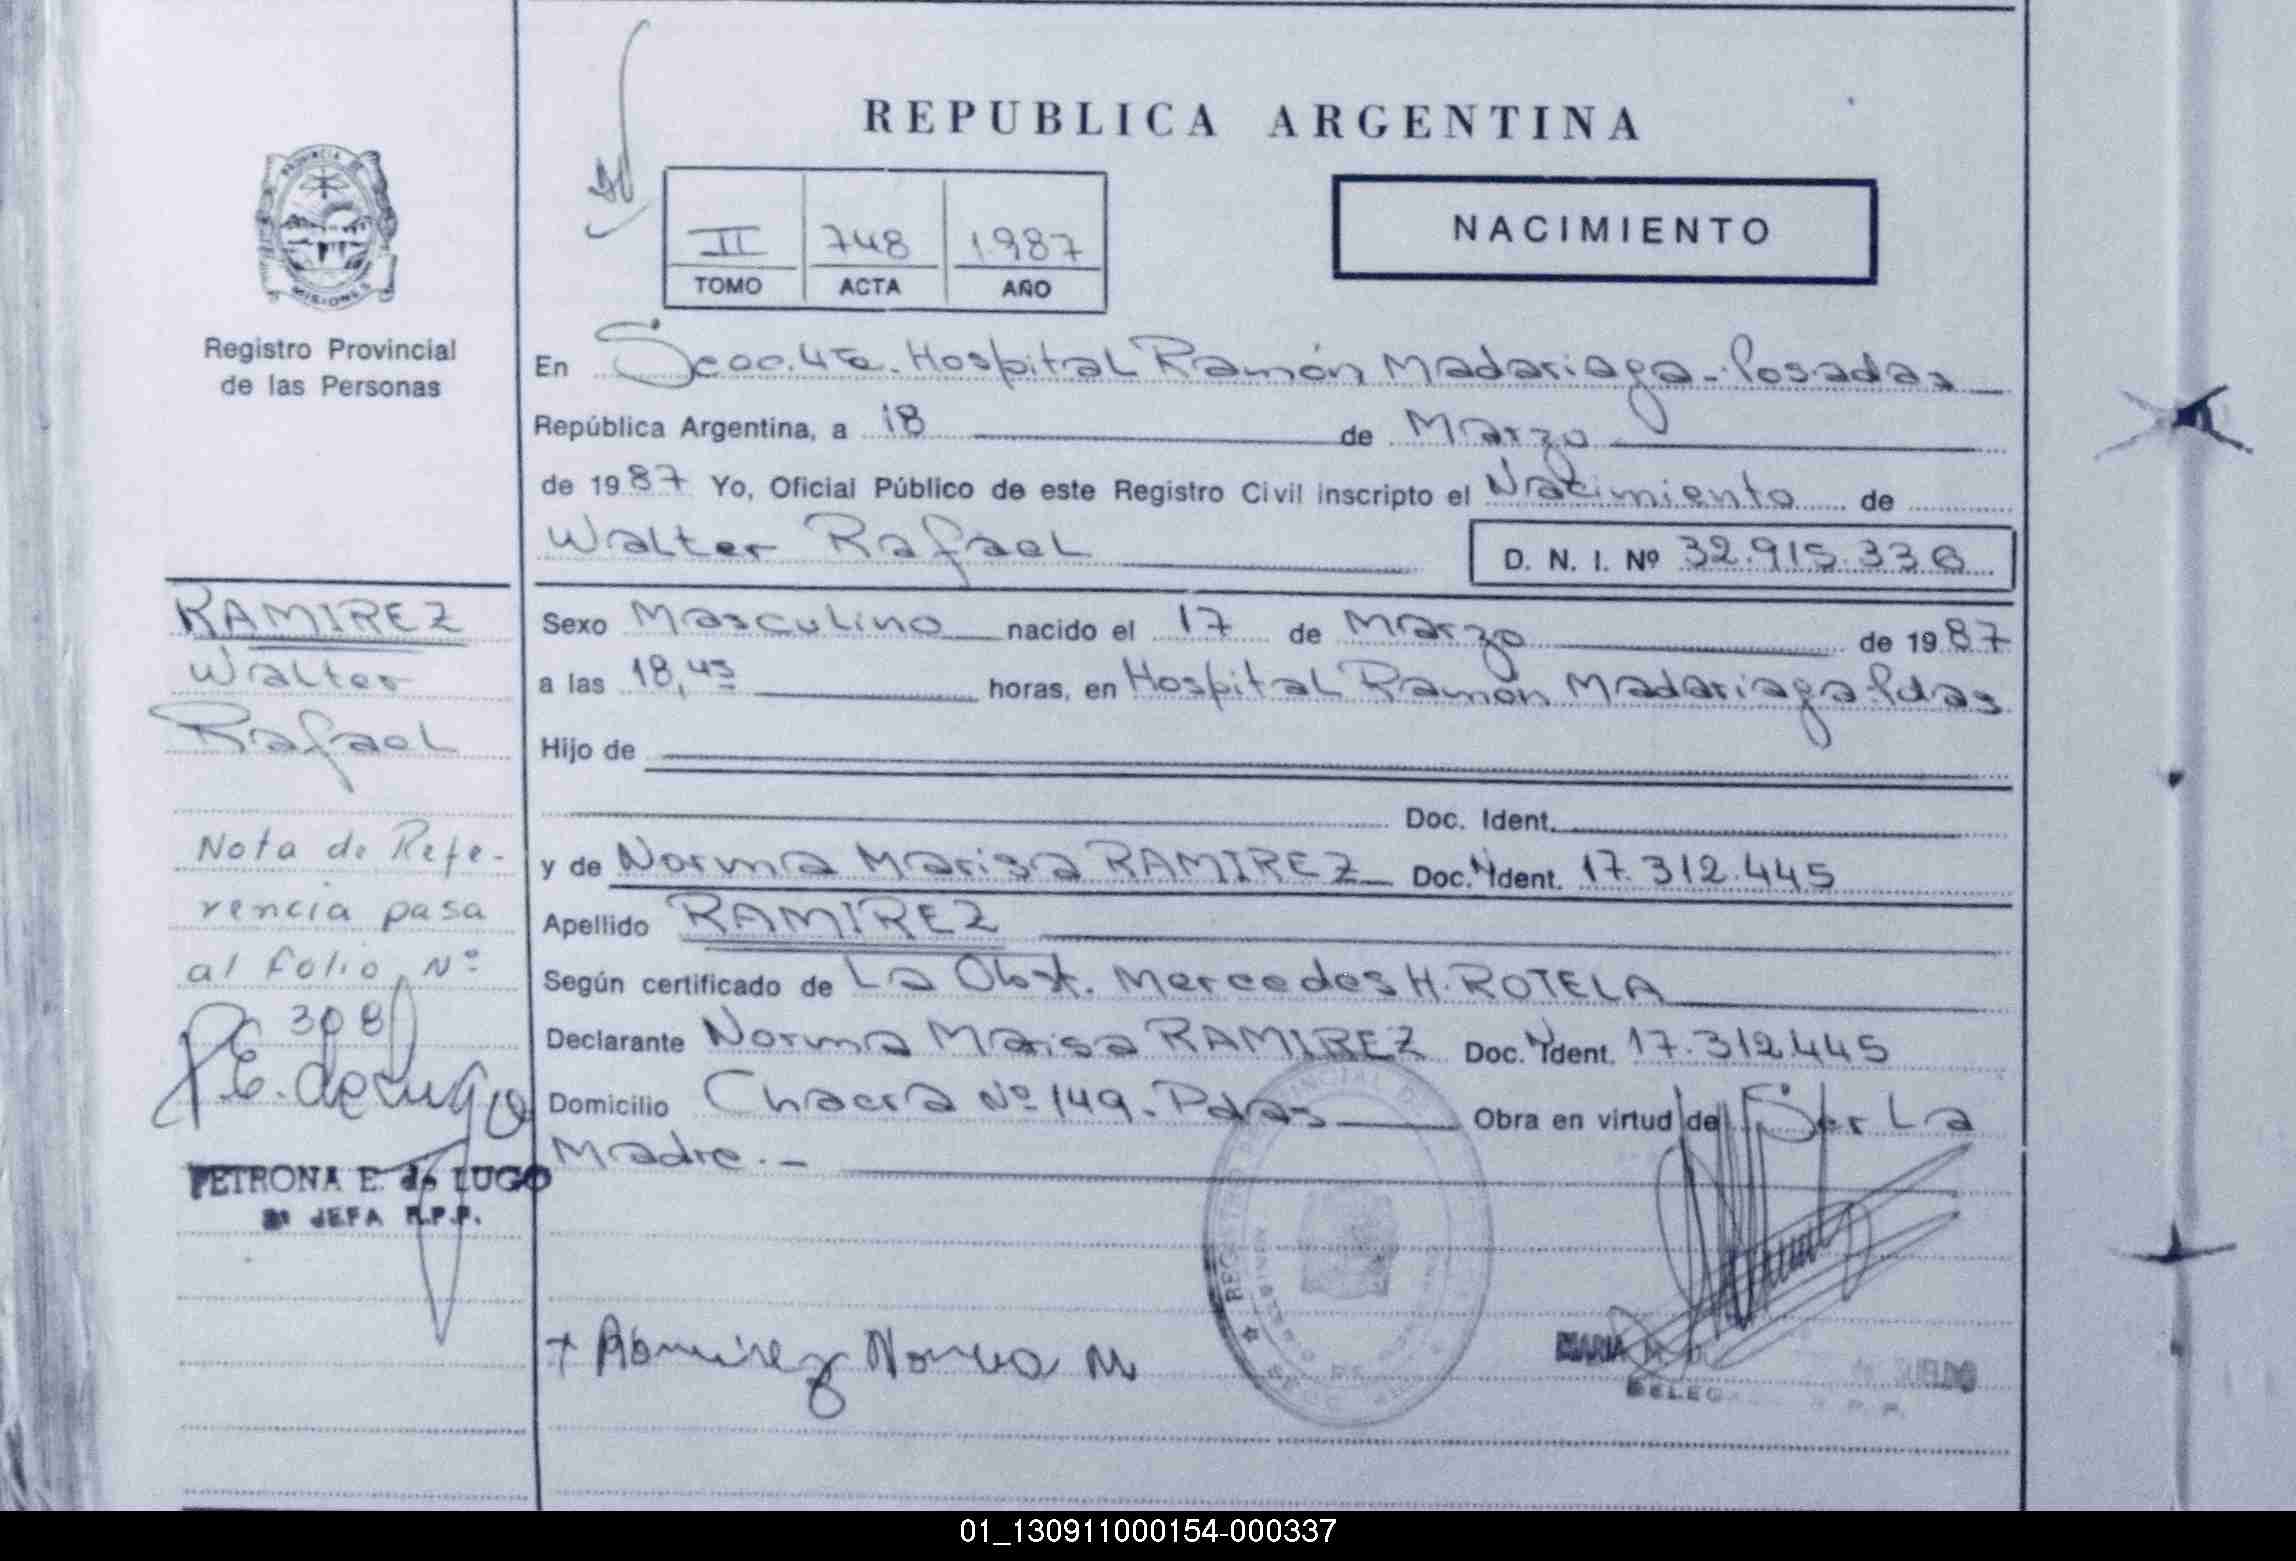 REPUBLICA ARGENTINA
II 748 1987
TOMO ACTA AÑO
NACIMIENTO
PROVINCIA DE MISIONES
Registro Provincial
de las Personas
En Secc. 4ta. Hospital Ramón Madariaga - Posadas
República Argentina, a 18 de Marzo
de 1987 Yo, Oficial Público de este Registro Civil inscripto el Nacimiento de
Walter Rafael
D. N. I. Nº 32.915.336
RAMIREZ
Walter
Rafael
Sexo Masculino nacido el 17 de Marzo de 1987
a las 18,45 horas, en Hospital Ramón Madariaga - Pdas
Hijo de
Doc. Ident.
y de Norma Marisa RAMIREZ Doc. Ident. 17.312.445
Apellido RAMIREZ
Según certificado de La Obst. Mercedes H. ROTELA
Declarante Norma Marisa RAMIREZ Doc. Ident. 17.312.445
Domicilio Chacra Nº 149. Pdas Obra en virtud de Ser La
Madre.-
Nota de Refe-
rencia pasa
al folio Nº
308
P.E. de Lugo
PETRONA E. de LUGO
2ª JEFA R.P.P.
+ Ramirez Norma M
MARIA
01_130911000154-000337